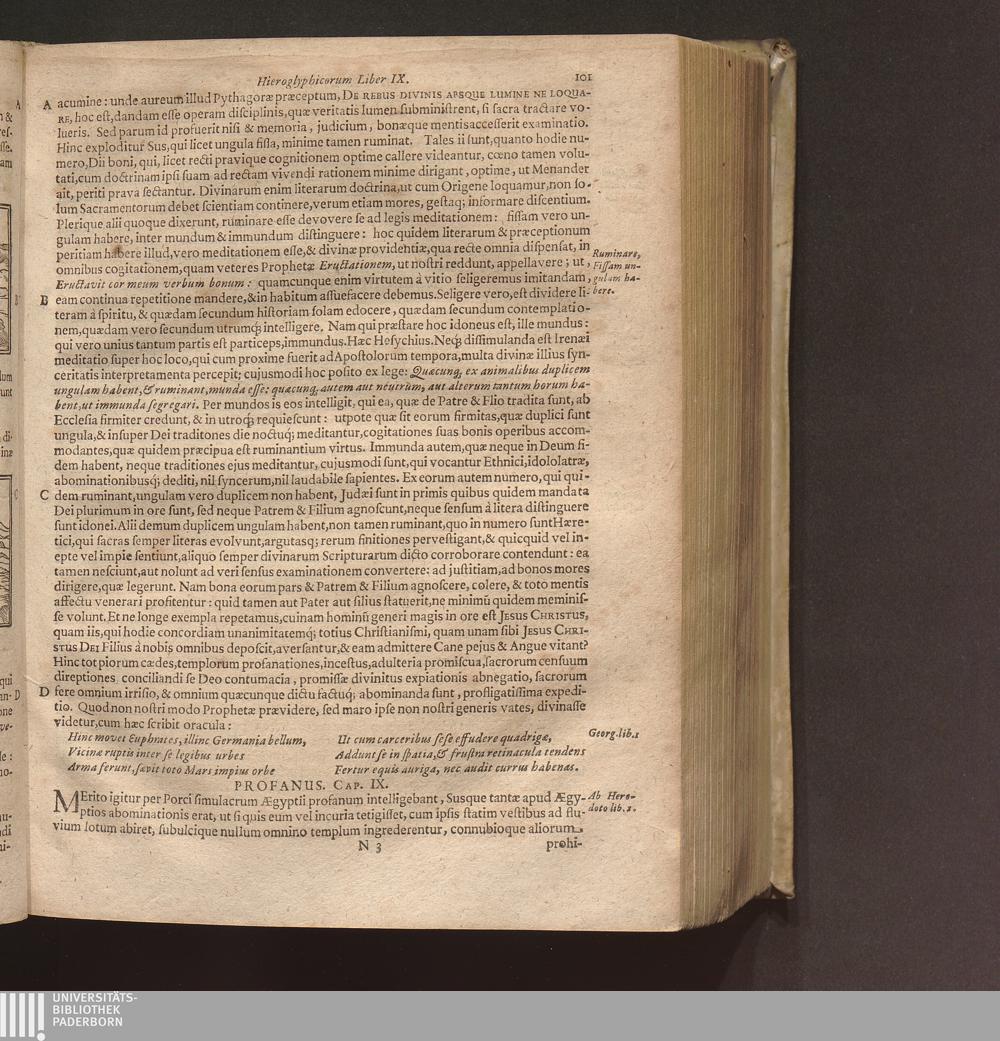 Hieroglyphicorum Liber IX. 101
A acumine: unde aureum illud Pythagoræ præceptum, DE REBUS DIVINIS ABSQUE LUMINE NE LOQUA-
RE, hoc est, dandam esse operam disciplinis, quæ veritatis lumen subministrent, si sacra tractare vo-
lueris. Sed parum id profuerit nisi & memoria, judicium, bonæque mentis accesserit examinatio.
Hinc exploditur Sus, qui licet ungula fissa, minime tamen ruminat. Tales ii sunt, quanto hodie nu-
mero, Dii boni, qui, licet recti pravique cognitionem optime callere videantur, cœno tamen volu-
tati, cum doctrinam ipsi suam ad rectam vivendi rationem minime dirigant, optime, ut Menander
ait, periti prava sectantur. Divinarum enim literarum doctrina, ut cum Origene loquamur, non so-
lum Sacramentorum debet scientiam continere, verum etiam mores, gestaq; informare discentium.
Plerique alii quoque dixerunt, ruminare esse devovere se ad legis meditationem: fissam vero un-
gulam habere, inter mundum & immundum distinguere: hoc quidem literarum & præceptionum
peritiam habere illud, vero meditationem esse, & divinæ providentiæ, qua recte omnia dispensat, in
omnibus cogitationem, quam veteres Prophetæ Eructationem, ut nostri reddunt, appellavere; ut,
Eructavit cor meum verbum bonum: quamcunque enim virtutem à vitio seligeremus imitandam,
Ruminare,
Fissam un-
gulam ha-
bere.
B eam continua repetitione mandere, & in habitum assuefacere debemus. Seligere vero, est dividere li-
teram à spiritu, & quædam secundum historiam solam edocere, quædam secundum contemplatio-
nem, quædam vero secundum utrumq; intelligere. Nam qui præstare hoc idoneus est, ille mundus:
qui vero unius tantum partis est particeps, immundus. Hæc Hesychius. Neq; dissimulanda est Irenæi
meditatio super hoc loco, qui cum proxime fuerit ad Apostolorum tempora, multa divinæ illius syn-
ceritatis interpretamenta percepit; cujusmodi hoc posito ex lege: Quæcunq; ex animalibus duplicem
ungulam habent, & ruminant, munda esse: quæcunq; autem aut neutrum, aut alterum tantum horum ha-
bent, ut immunda segregari. Per mundos is eos intelligit, qui ea, quæ de Patre & Flio tradita sunt, ab
Ecclesia firmiter credunt, & in utroq; requiescunt: utpote quæ sit eorum firmitas, quæ duplici sunt
ungula, & insuper Dei traditones die noctuq; meditantur, cogitationes suas bonis operibus accom-
modantes, quæ quidem præcipua est ruminantium virtus. Immunda autem, quæ neque in Deum fi-
dem habent, neque traditiones ejus meditantur, cujusmodi sunt, qui vocantur Ethnici, idololatræ,
abominationibusq; dediti, nil syncerum, nil laudabile sapientes. Ex eorum autem numero, qui qui-
C dem ruminant, ungulam vero duplicem non habent, Judæi sunt in primis quibus quidem mandata
Dei plurimum in ore sunt, sed neque Patrem & Filium agnoscunt, neque sensum à litera distinguere
sunt idonei. Alii demum duplicem ungulam habent, non tamen ruminant, quo in numero sunt Hære-
tici, qui sacras semper literas evolvunt, argutasq; rerum finitiones pervestigant, & quicquid vel in-
epte vel impie sentiunt, aliquo semper divinarum Scripturarum dicto corroborare contendunt: ea
tamen nesciunt, aut nolunt ad veri sensus examinationem convertere: ad justitiam, ad bonos mores
dirigere, quæ legerunt. Nam bona eorum pars & Patrem & Filium agnoscere, colere, & toto mentis
affectu venerari profitentur: quid tamen aut Pater aut filius statuerit, ne minimũ quidem meminis-
se volunt. Et ne longe exempla repetamus, cuinam hominũ generi magis in ore est JESUS CHRISTUS,
quam iis, qui hodie concordiam unanimitatemq; totius Christianismi, quam unam sibi JESUS CHRI-
STUS DEI Filius à nobis omnibus deposcit, aversantur, & eam admittere Cane pejus & Angue vitant?
Hinc tot piorum cædes, templorum profanationes, incestus, adulteria promiscua, sacrorum censuum
direptiones conciliandi se Deo contumacia, promissæ divinitus expiationis abnegatio, sacrorum
D fere omnium irrisio, & omnium quæcunque dictu factuq; abominanda sunt, profligatissima expedi-
tio. Quod non nostri modo Prophetæ prævidere, sed maro ipse non nostri generis vates, divinasse
videtur, cum hæc scribit oracula:
Hinc movet Euphrates, illinc Germania bellum,
Vicinæ ruptis inter se legibus urbes
Arma ferunt, sævit toto Mars impius orbe
Ut cum carceribus sese effudere quadrigæ,
Addunt se in spatia, & frustra retinacula tendens
Fertur equis auriga, nec audit currus habenas.
Georg. lib. 1
PROFANUS. CAP. IX.
MErito igitur per Porci simulacrum Ægyptii profanum intelligebant, Susque tantæ apud Ægy-
ptios abominationis erat, ut si quis eum vel incuria tetigisset, cum ipsis statim vestibus ad flu-
vium lotum abiret, subulcique nullum omnino templum ingrederentur, connubioque aliorum
Ab Hero-
doto lib. 2.
N 3 prohi-
UNIVERSITÄTS-
BIBLIOTHEK
PADERBORN